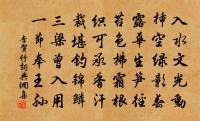 入水文光動
抽空綠影春
露華生筍徑
苔色拂霜根
織可承香汗
裁堪釣錦鱗
三梁曾入用
一節奉王孫
李賀竹詞典網集